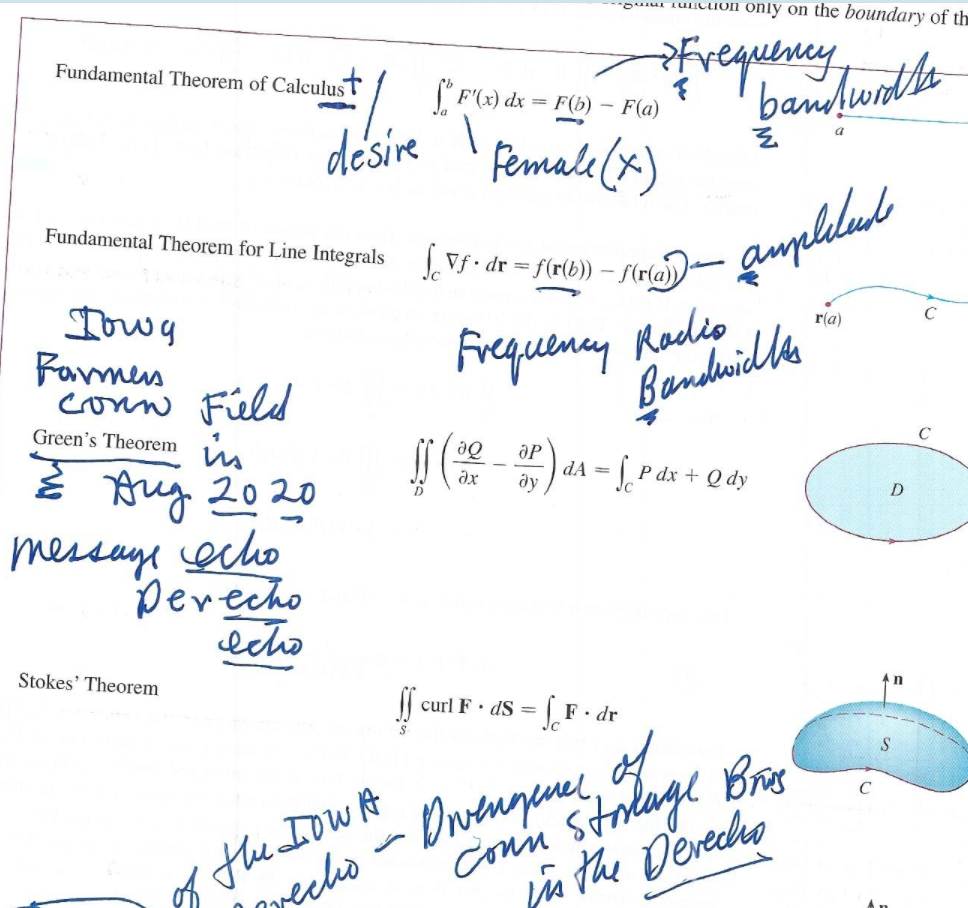 original function only on the boundary of th
Fundamental Theorem of Calculus t
∫_a^b F'(x) dx = F(b) − F(a)
Frequency
bandwidth
a
desire
Female (x)
Fundamental Theorem for Line Integrals
∫_C ∇f · dr = f(r(b)) − f(r(a))
amplitude
r(a)
C
Iowa
Farmers
Corn Field
Frequency Radio
Bandwidths
Green's Theorem
∬_D (∂Q/∂x − ∂P/∂y) dA = ∫_C P dx + Q dy
C
D
in
Aug 2020
message echo
Derecho
echo
Stokes' Theorem
∬_S curl F · dS = ∫_C F · dr
n
S
C
of the IOWA
Derecho - Divergence of
Corn Storage Bins
in the Derecho
n